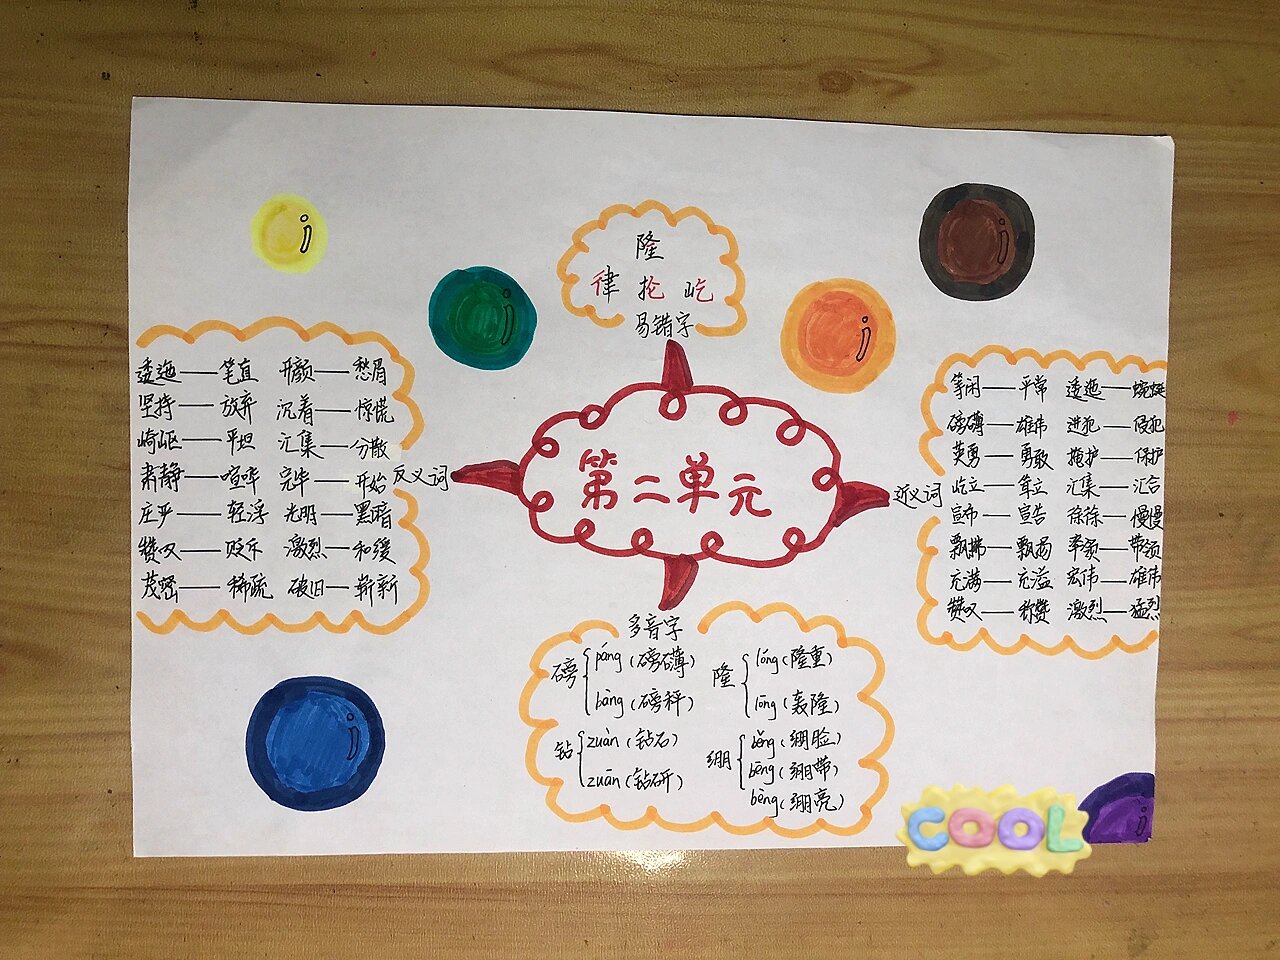 第二单元
隆
律 抡 屹
易错字
反义词
逶迤——笔直 开颜——愁眉
坚持——放弃 沉着——惊慌
崎岖——平坦 汇集——分散
肃静——喧哗 完毕——开始
庄严——轻浮 光明——黑暗
赞叹——贬斥 激烈——和缓
茂密——稀疏 破旧——崭新
近义词
等闲——平常 逶迤——蜿蜒
磅礴——雄伟 进犯——侵犯
英勇——勇敢 掩护——保护
屹立——耸立 汇集——汇合
宣布——宣告 徐徐——慢慢
飘拂——飘扬 率领——带领
充满——充溢 宏伟——雄伟
赞叹——称赞 激烈——猛烈
多音字
磅 páng(磅礴)
bàng(磅秤)
隆 lóng(隆重)
lōng(轰隆)
钻 zuàn(钻石)
zuān(钻研)
绷 běng(绷脸)
bēng(绷带)
bèng(绷亮)
COOL